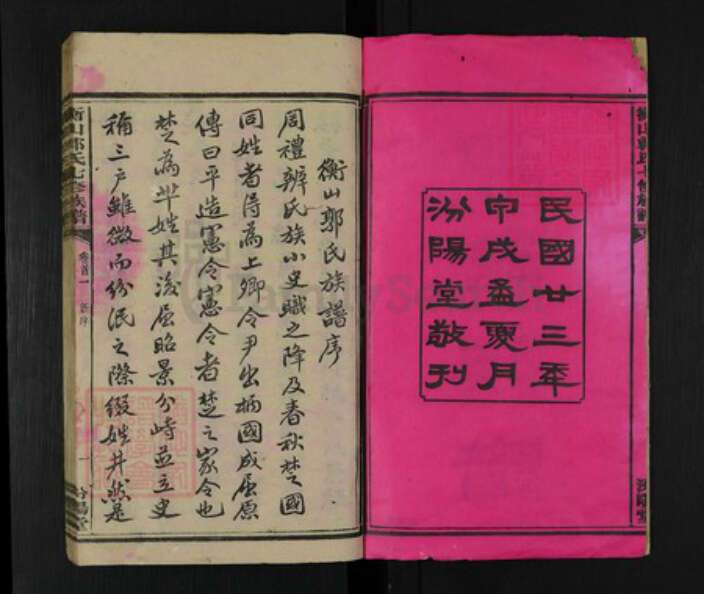 民國廿三年
甲戌孟夏月
汾陽堂敬刊
衡山郭氏族譜序
周禮辨氏族小史職之降及春秋楚國
同姓者得為上卿令尹出柄國成屈原
傳曰平造憲令憲令者楚之家令也
楚為芈姓其後屈昭景分峙並立史
稱三户雖微而紛泯之際綴姓井然是
衡山郭氏七修族譜
卷首一
一
汾陽堂